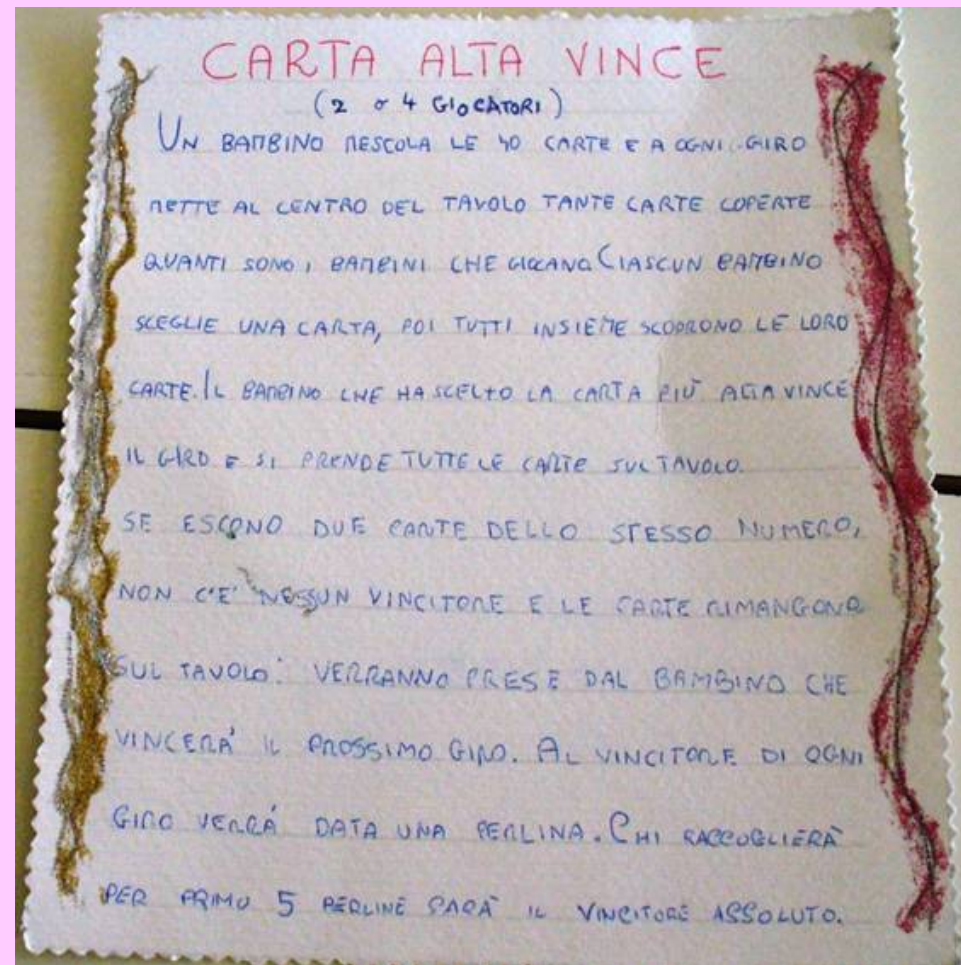 CARTA ALTA VINCE
(2 o 4 GIOCATORI)
UN BAMBINO MESCOLA LE 40 CARTE E A OGNI GIRO
METTE AL CENTRO DEL TAVOLO TANTE CARTE COPERTE
QUANTI SONO I BAMBINI CHE GIOCANO CIASCUN BAMBINO
SCEGLIE UNA CARTA, POI TUTTI INSIEME SCOPRONO LE LORO
CARTE. IL BAMBINO CHE HA SCELTO LA CARTA PIÙ ALTA VINCE
IL GIRO E SI PRENDE TUTTE LE CARTE SUL TAVOLO.
SE ESCONO DUE CARTE DELLO STESSO NUMERO,
NON C'E' NESSUN VINCITORE E LE CARTE RIMANGONO
SUL TAVOLO: VERRANNO PRESE DAL BAMBINO CHE
VINCERA' IL PROSSIMO GIRO. AL VINCITORE DI OGNI
GIRO VERRÁ DATA UNA PERLINA. CHI RACCOGLIERÀ
PER PRIMO 5 PERLINE SARA' IL VINCITORE ASSOLUTO.